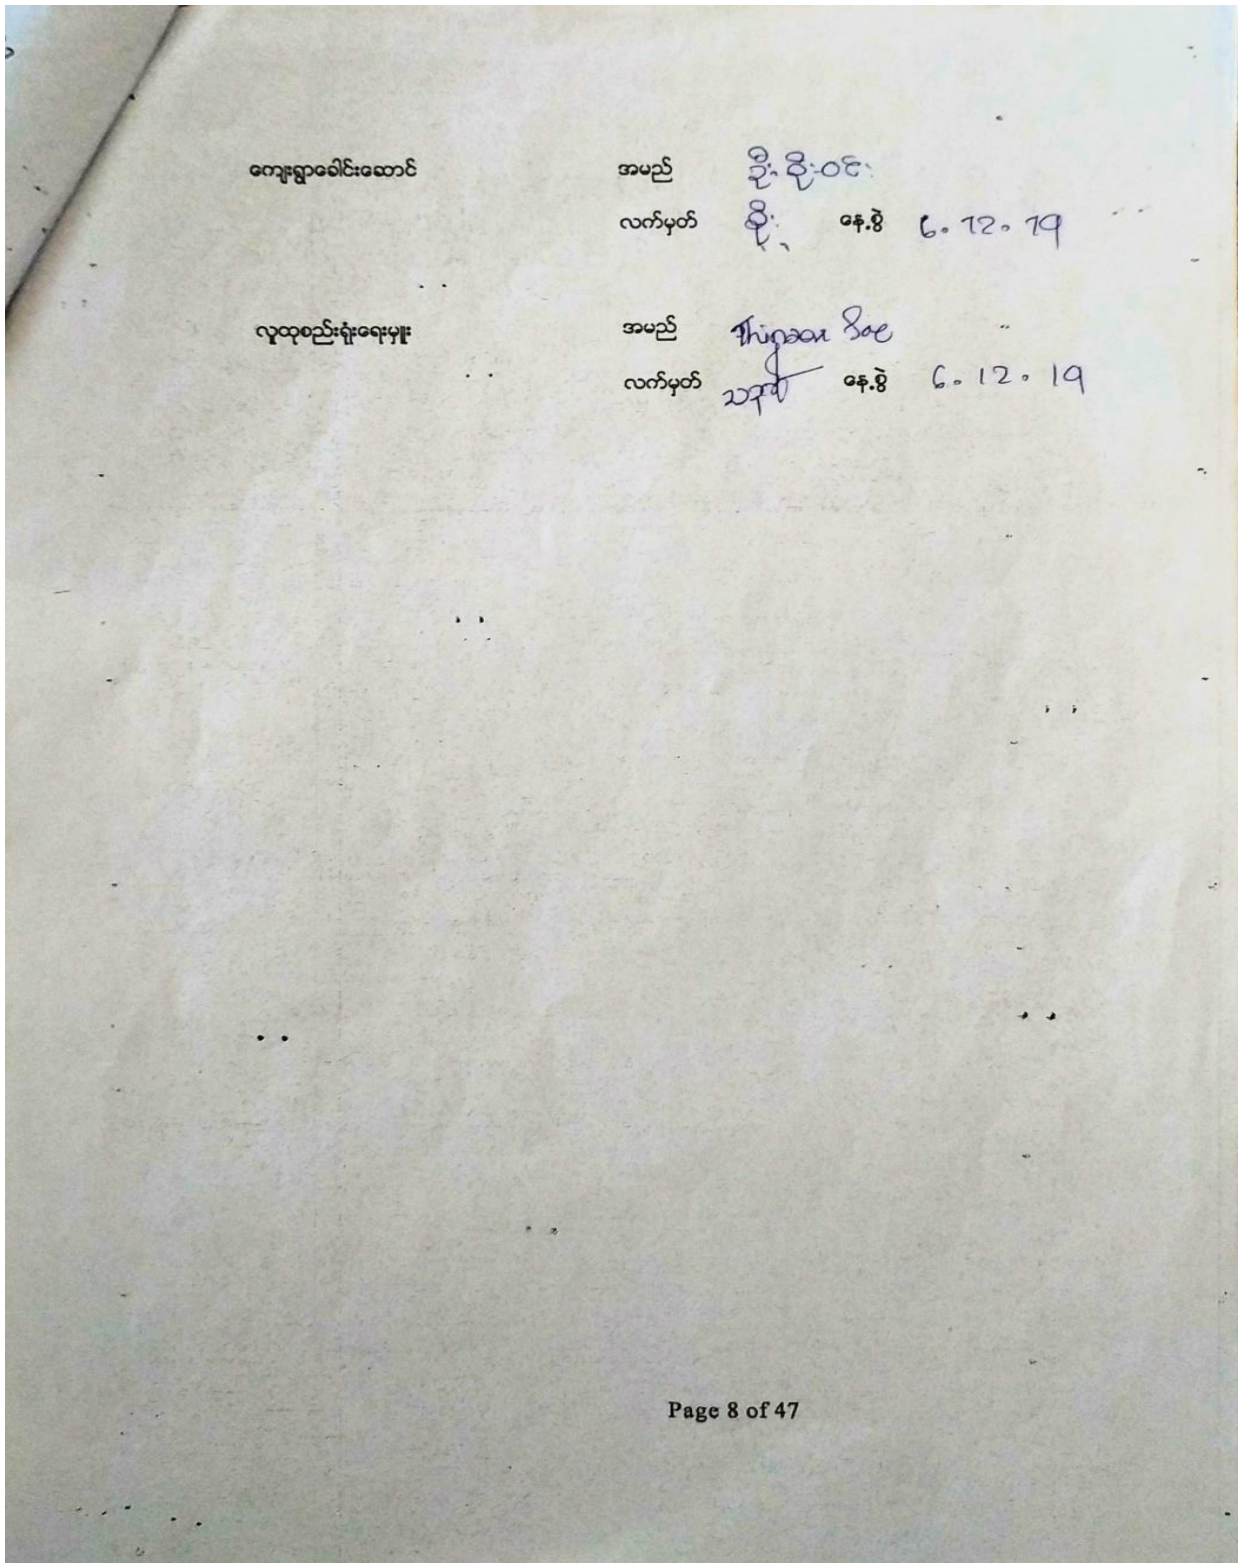 ကျေးရွာခေါင်းဆောင် အမည် ဦးစိုးဝင်း
လက်မှတ် စိုး နေ့စွဲ 6.12.19
လူထုစည်းရုံးရေးမှူး အမည် Thinzar Soe
လက်မှတ် နေ့စွဲ 6.12.19
Page 8 of 47